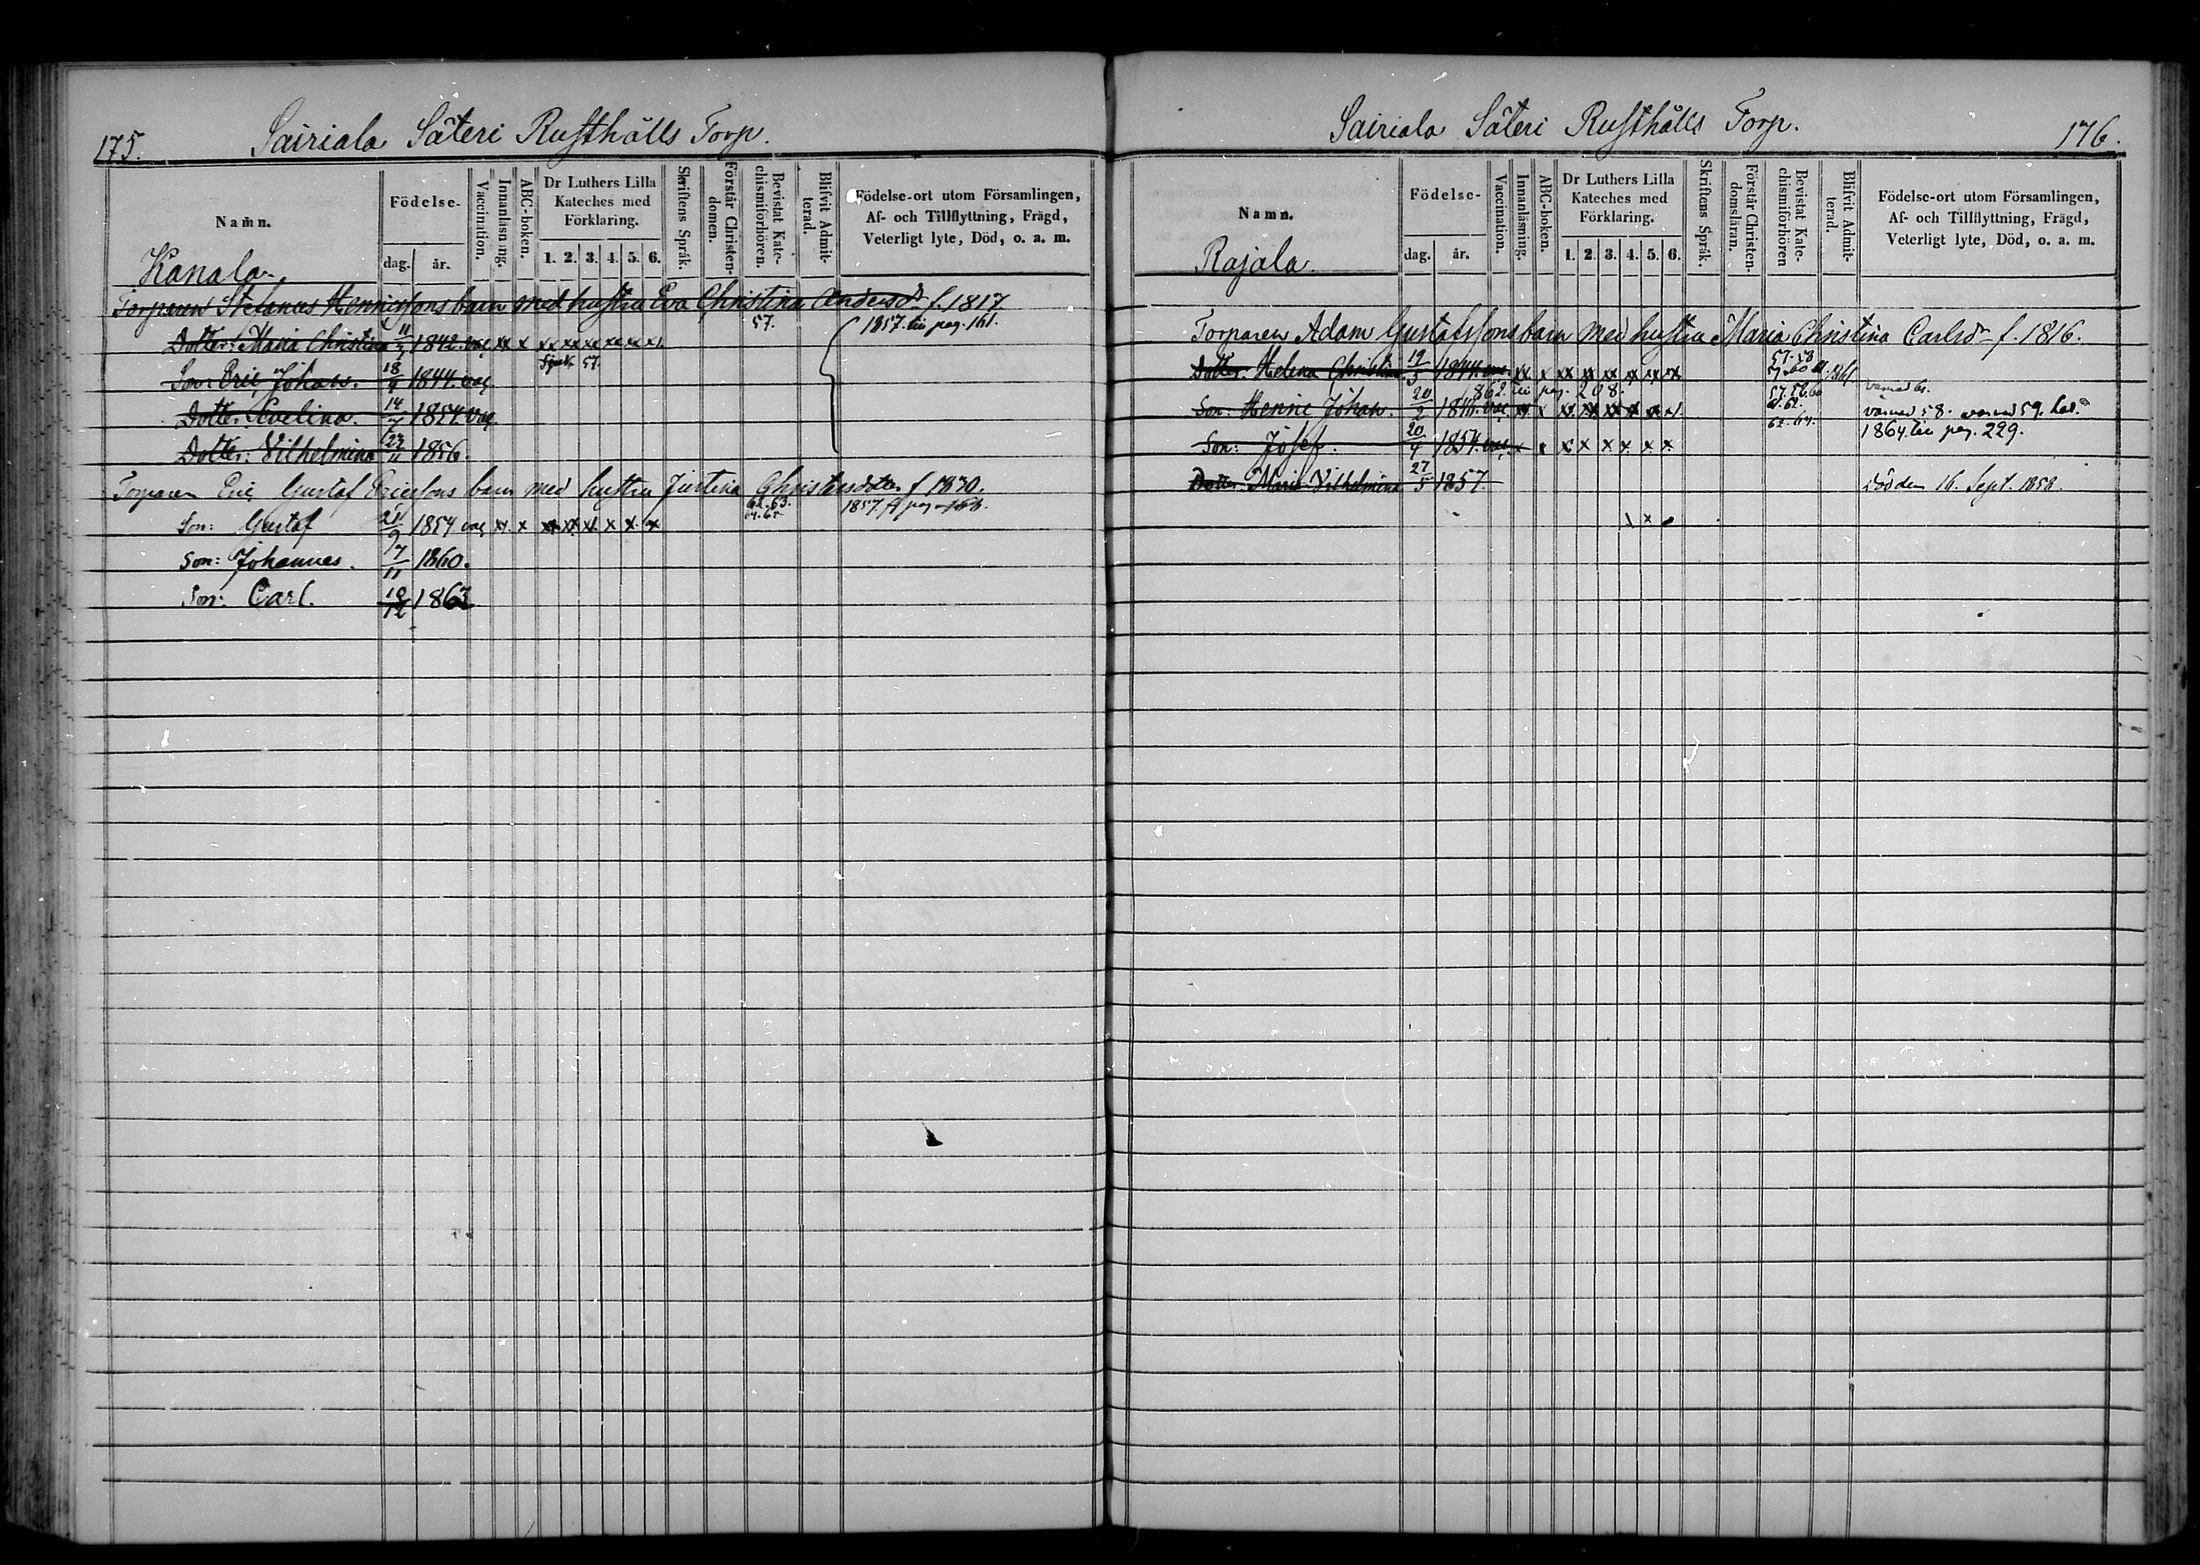 175.
Sairiala Säteri Rusthålls Torp.
Namn.
Födelse-
dag.
år.
Vaccination.
Innanläsning.
ABC-boken.
Dr Luthers Lilla
Kateches med
Förklaring.
1. 2. 3. 4. 5. 6.
Skriftens Språk.
Förstår Christen-
domen.
Bevistat Kate-
chismiförhören.
Blifvit Admit-
terad.
Födelse-ort utom Församlingen,
Af- och Tillflyttning, Frägd,
Veterligt lyte, Död, o. a. m.
Kanala.
Torparen Stefanus Henricssons barn med hustru Eva Christina Andersdr f. 1817
Dotter: Maria Christina 1842. vac xx x xx xx xx xx xx x. 57. 1857. till pag. 161.
Son: Eric Johan. 18/9 1844. vac 57.
Dotter Evelina. 14/7 1854. vac
Dotter: Vilhelmina 1856.
Torparen Eric Gustaf Ericssons barn med hustru Justina Christersdotter f 1830.
Son: Gustaf 21/9 1854 vac x x x x x x x x 62. 63. 64. 65 1857 pag 166.
Son: Johannes. 7/11 1860.
Son: Carl. 10/12 1863
Sairiala Säteri Rusthålls Torp.
176.
Namn.
Födelse-
dag.
år.
Vaccination.
Innanläsning.
ABC-boken.
Dr Luthers Lilla
Kateches med
Förklaring.
1. 2. 3. 4. 5. 6.
Skriftens Språk.
Förstår Christen-
domsläran.
Bevistat Kate-
chismiförhören
Blifvit Admit-
terad.
Födelse-ort utom Församlingen,
Af- och Tillflyttning, Frägd,
Veterligt lyte, Död, o. a. m.
Rajala.
Torparen Adam Gustafssons barn med hustru Maria Christina Carlsdr f. 1816.
Dotter: Helena Christina 19/5 1844. vac. xx x xx xx xx xx xx xx 57. 58 59. 60 61. 1861.
862. till pag. 208.
Son: Henric Johan. 20/2 vac x x xx xx xx x xx x. 57. 58. 60 61. 62.
1864. till pag. 229.
Son: Josef. 20/4 1854. vac x x x x x x x x 62. 64.
Dotter: Maria Vilhelmina 27/5 1857. Död den 16. Sept. 1858.